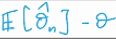 𝔼[θ̂ₙ] - θ